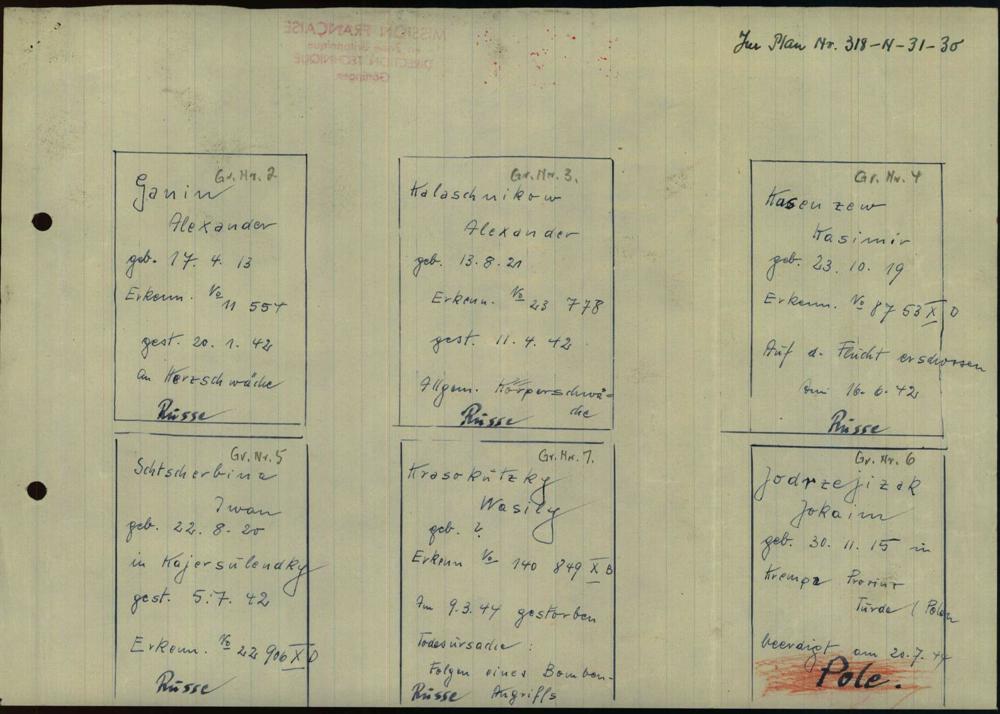 MISSION FRANÇAISE
DIRECTION TECHNIQUE
Göttingen
Zu Plan Nr. 318-N-31-30
Gr. Nr. 2
Ganin
Alexander
geb. 17. 4. 13
Erkenn. No 11 554
gest. 20. 1. 42
an Herzschwäche
Russe
Gr. Nr. 3.
Kalaschnikow
Alexander
geb. 13. 8. 21
Erkenn. No 23 778
gest. 11. 4. 42
Allgem. Körperschwä=
che
Russe
Gr. Nr. 4
Kasenzew
Kasimir
geb. 23. 10. 19
Erkenn. No 87 53 X D
Auf d. Flucht erschossen
am 16. 6. 42
Russe
Gr. Nr. 5
Schtscherbina
Iwan
geb. 22. 8. 20
in Kajersulendky
gest. 5. 7. 42
Erkenn. No 22 906 X D
Russe
Gr. Nr. 1.
Krasokutzky
Wasily
geb. ?
Erkenn No 140 849 X B
Am 9.3.44 gestorben
Todesursache :
Folgen eines Bomben-
Russe Angriffs
Gr. Nr. 6
Jodrzejizak
Jokaim
geb. 30. 11. 15 in
Krempa Provinz
Turde (Polen
beerdigt am 20. 7. 44
Pole.